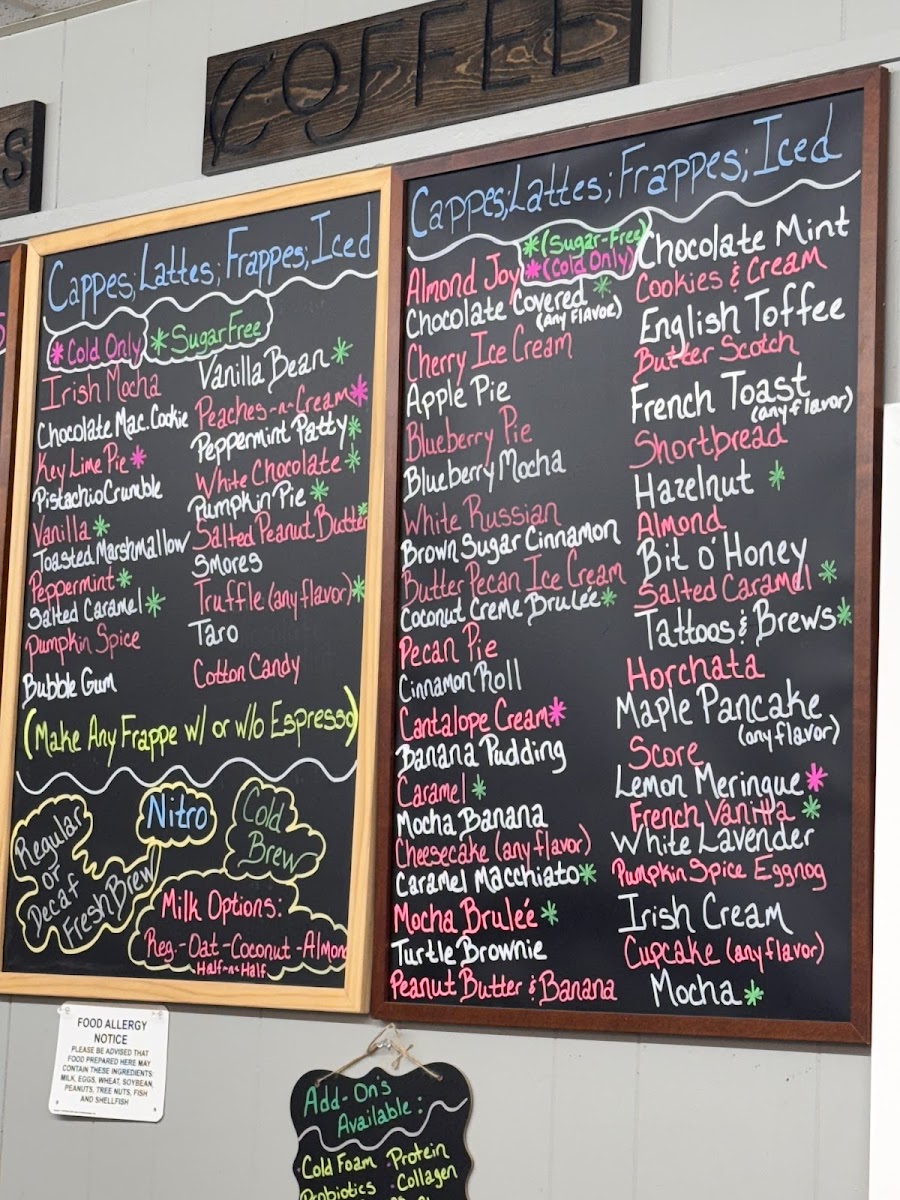 COFFEE
S
Cappes; Lattes; Frappes; Iced
*Cold Only
*Sugar Free
Irish Mocha
Chocolate Mac. Cookie
Key Lime Pie*
Pistachio Crumble
Vanilla*
Toasted Marshmallow
Peppermint*
Salted Caramel*
Pumpkin Spice
Bubble Gum
Vanilla Bean*
Peaches-n-Cream*
Peppermint Patty*
White Chocolate*
Pumpkin Pie*
Salted Peanut Butter*
Smores
Truffle (any flavor)*
Taro
Cotton Candy
(Make Any Frappe w/ or w/o Espresso)
Regular
or
Decaf
Fresh Brew
Nitro
Cold
Brew
Milk Options:
Reg.-Oat-Coconut-Almond
Half-n-Half
Cappes; Lattes; Frappes; Iced
*(Sugar-Free)
*(Cold Only)
Almond Joy
Chocolate Covered*
(any flavor)
Cherry Ice Cream
Apple Pie
Blueberry Pie
Blueberry Mocha
White Russian
Brown Sugar Cinnamon
Butter Pecan Ice Cream
Coconut Creme Brulée*
Pecan Pie
Cinnamon Roll
Cantalope Cream*
Banana Pudding
Caramel*
Mocha Banana
Cheesecake (any flavor)
Caramel Macchiato*
Mocha Brulée*
Turtle Brownie
Peanut Butter & Banana
Chocolate Mint
Cookies & Cream
English Toffee
Butter Scotch
French Toast
(any flavor)
Shortbread
Hazelnut *
Almond
Bit o' Honey
Salted Caramel*
Tattoos & Brews*
Horchata
Maple Pancake
(any flavor)
Score
Lemon Meringue*
French Vanilla*
White Lavender
Pumpkin Spice Eggnog
Irish Cream
Cupcake (any flavor)
Mocha*
FOOD ALLERGY
NOTICE
PLEASE BE ADVISED THAT
FOOD PREPARED HERE MAY
CONTAIN THESE INGREDIENTS:
MILK, EGGS, WHEAT, SOYBEAN,
PEANUTS, TREE NUTS, FISH
AND SHELLFISH
Add-On's
Available:
Cold Foam
Probiotics
Protein
Collagen